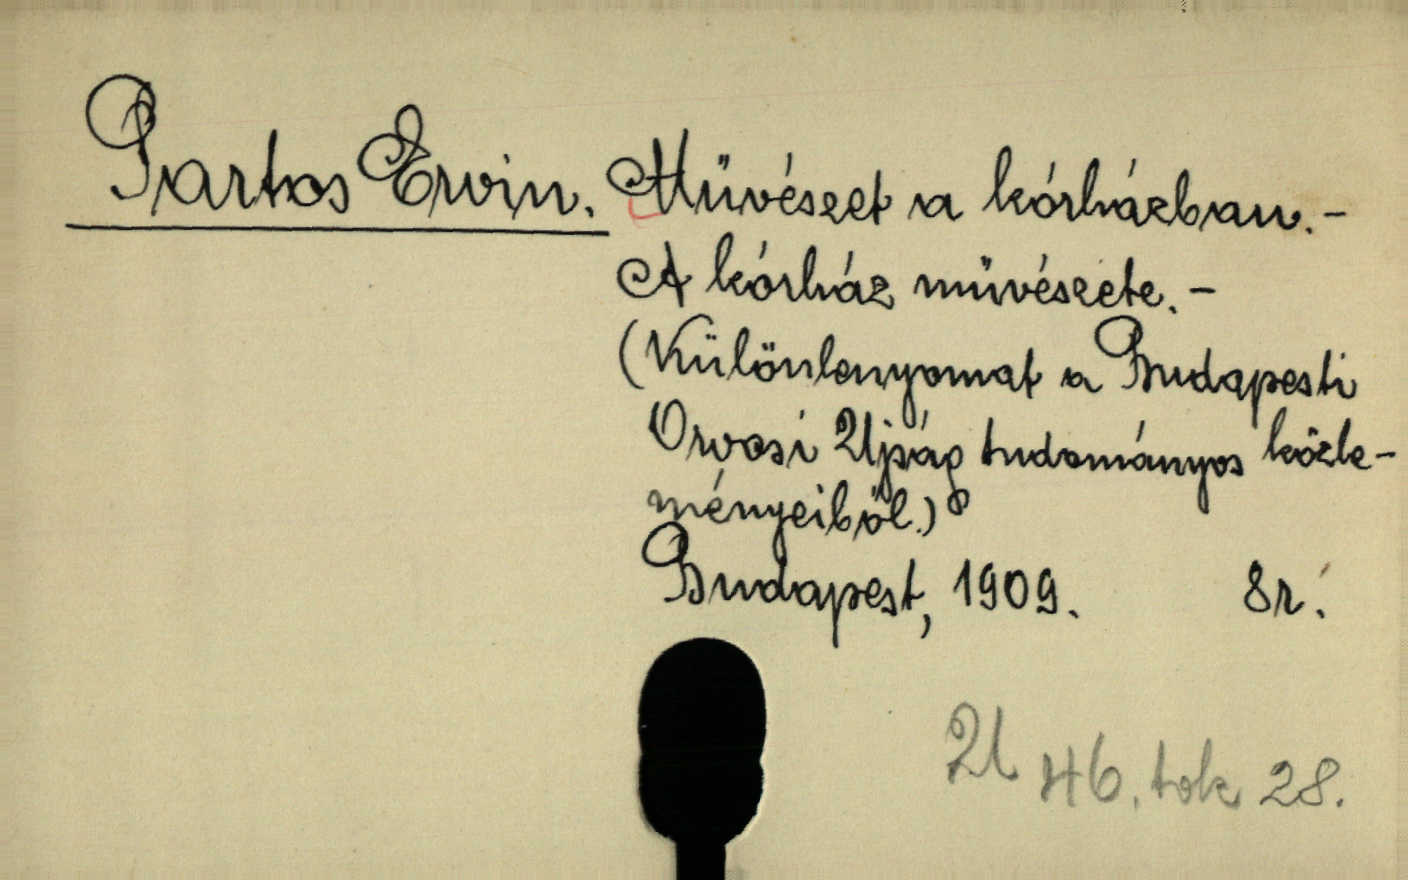 Partos Ervin. Művészet a kórházban.-
A kórház művészete.-
(Különlenyomat a Budapesti
Orvosi Ujság tudományos közle-
ményeiből.)
Budapest, 1909. 8r.
U 46. tok 28.